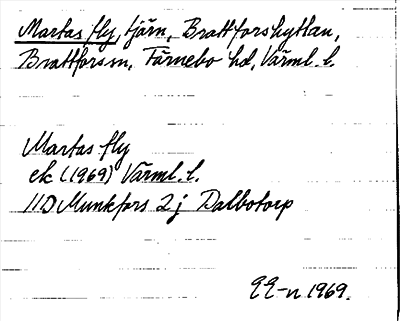 Martas fly, tjärn, Brattforshyttan,
Brattfors sn, Färnebo hd, Värml. l.
Martas fly
ek (1969) Värml. l.
11D Munkfors 2 j Dalbotorp
1969.